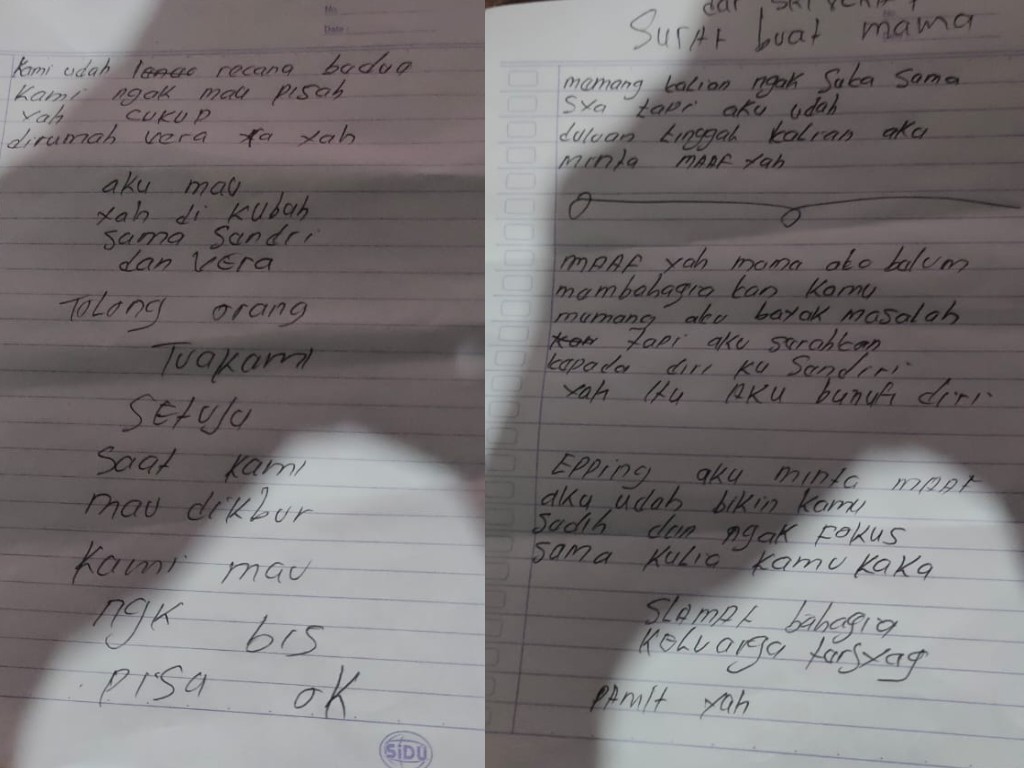 No.
Date
Kami udah recana badua
Kami ngak mau pisah
yah CUKUP
dirumah vera yah
aku mau
yah di kubah
sama Sandri
dan VEra
Tolong orang
Tuakami
SEtuju
Saat kami
mau dikbur
Kami mau
ngk bis
pisa oK
SiDU
Surat buat mama
memang kalian ngak Suka Sama
Sya tapi aku udah
duluan tinggah kalian aku
minta MAAF yah
MAAF yah mama ako balum
mambahagia kan Kamu
mumang aku bayak masalah
Tapi aku sarahkan
kapada diri ku Sandiri
yah Itu AKU bunuh diri
EPPing aku minta MAAF
aku udah bikin kamu
Sadih dan ngak FOKUS
Sama Kulia Kamu KaKa
SLAMAT bahagia
KOLuarga tarsyag
PAMIt yah